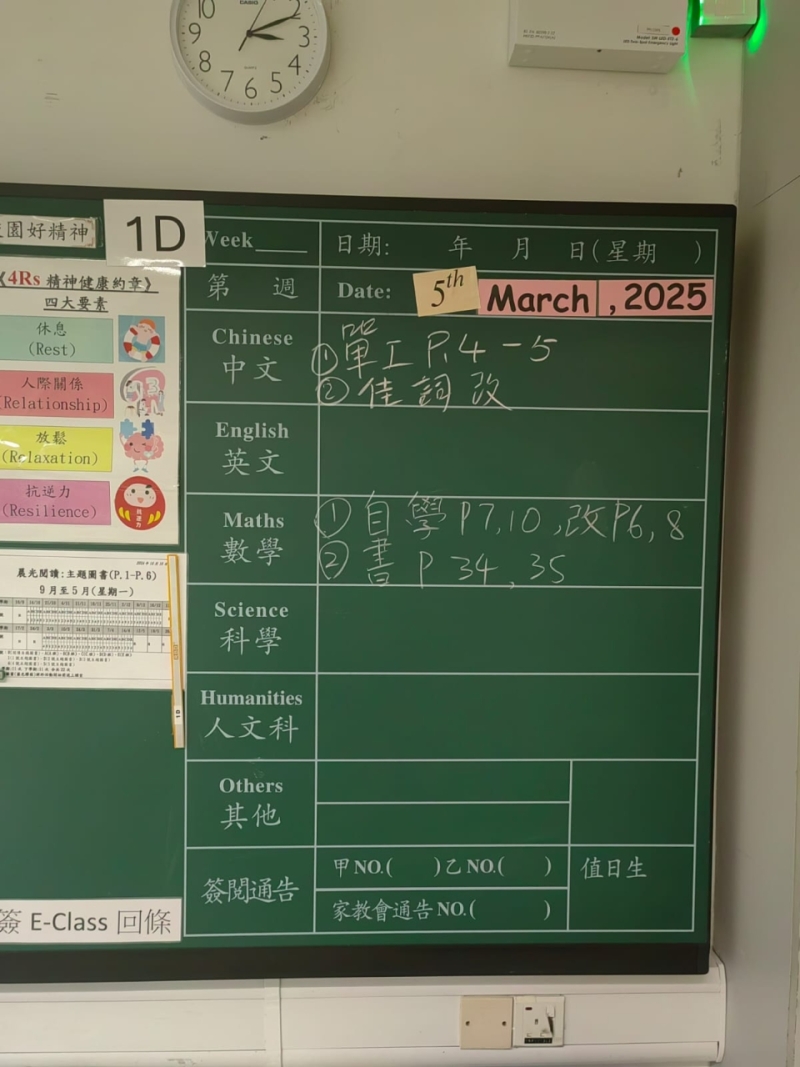 10
CASIO
2
3
4
5
6
7
8
9
QUARTZ
園好精神
1D
《4Rs 精神健康約章》
四大要素
休息
(Rest)
人際關係
(Relationship)
放鬆
(Relaxation)
抗逆力
(Resilience)
晨光閱讀:主題圖書(P.1-P.6)
9月至5月(星期一)
簽 E-Class 回條
Week____ 日期: 年 月 日(星期 )
第 週 Date: 5th March , 2025
Chinese
中文
① 單工 P.4-5
② 佳詞改
English
英文
Maths
數學
① 自學 P7,10,改P6,8
② 書 P 34,35
Science
科學
Humanities
人文科
Others
其他
簽閱通告
甲NO.( )乙NO.( )
家教會通告NO.( )
值日生